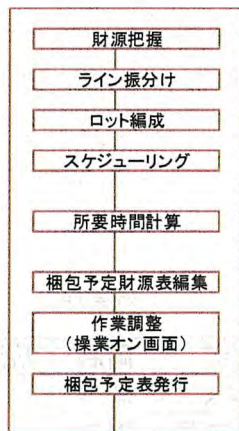 財源把握
ライン振分け
ロット編成
スケジューリング
所要時間計算
梱包予定財源表編集
作業調整
(操業オン画面)
梱包予定表発行